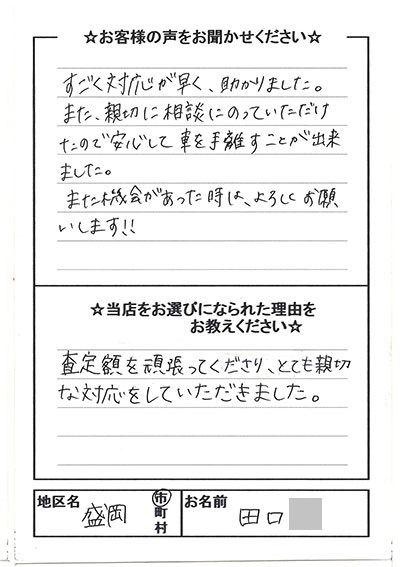 ☆お客様の声をお聞かせください☆
すごく対応が早く、助かりました。
また、親切に相談にのっていただけ
たので安心して車を手離すことが出来
ました。
また機会があった時は、よろしくお願
いします!!
☆当店をお選びになられた理由を
お教えください☆
査定額を頑張ってくださり、とても親切
な対応をしていただきました。
地区名 盛岡 市町村 お名前 田口